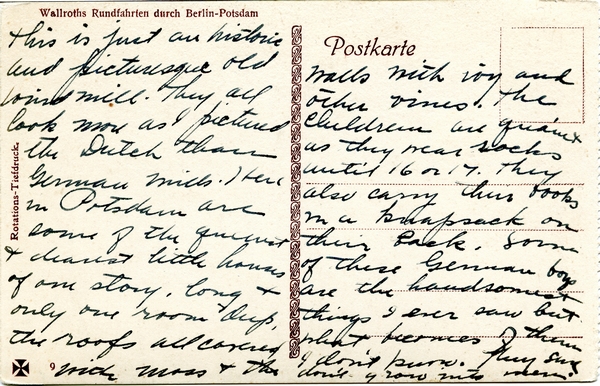 Wallroths Rundfahrten durch Berlin-Potsdam
This is just an historic
and picturesque old
wind mill. They all
look more as I pictured
the Dutch than
German mills. Here
in Potsdam are
some of the queerest
& dearest little houses
of one story, long &
only one room deep,
the roofs all covered
with moss & the
Rotations-Tiefdruck.
9
Postkarte
walls with ivy and
other vines. The
children are quaint
as they wear socks
until 16 or 17. They
also carry their books
in a knapsack on
their back. Some
of these German boys
are the handsomest
things I ever saw but
what becomes of them
I don't know. They sure
don't grow into men.